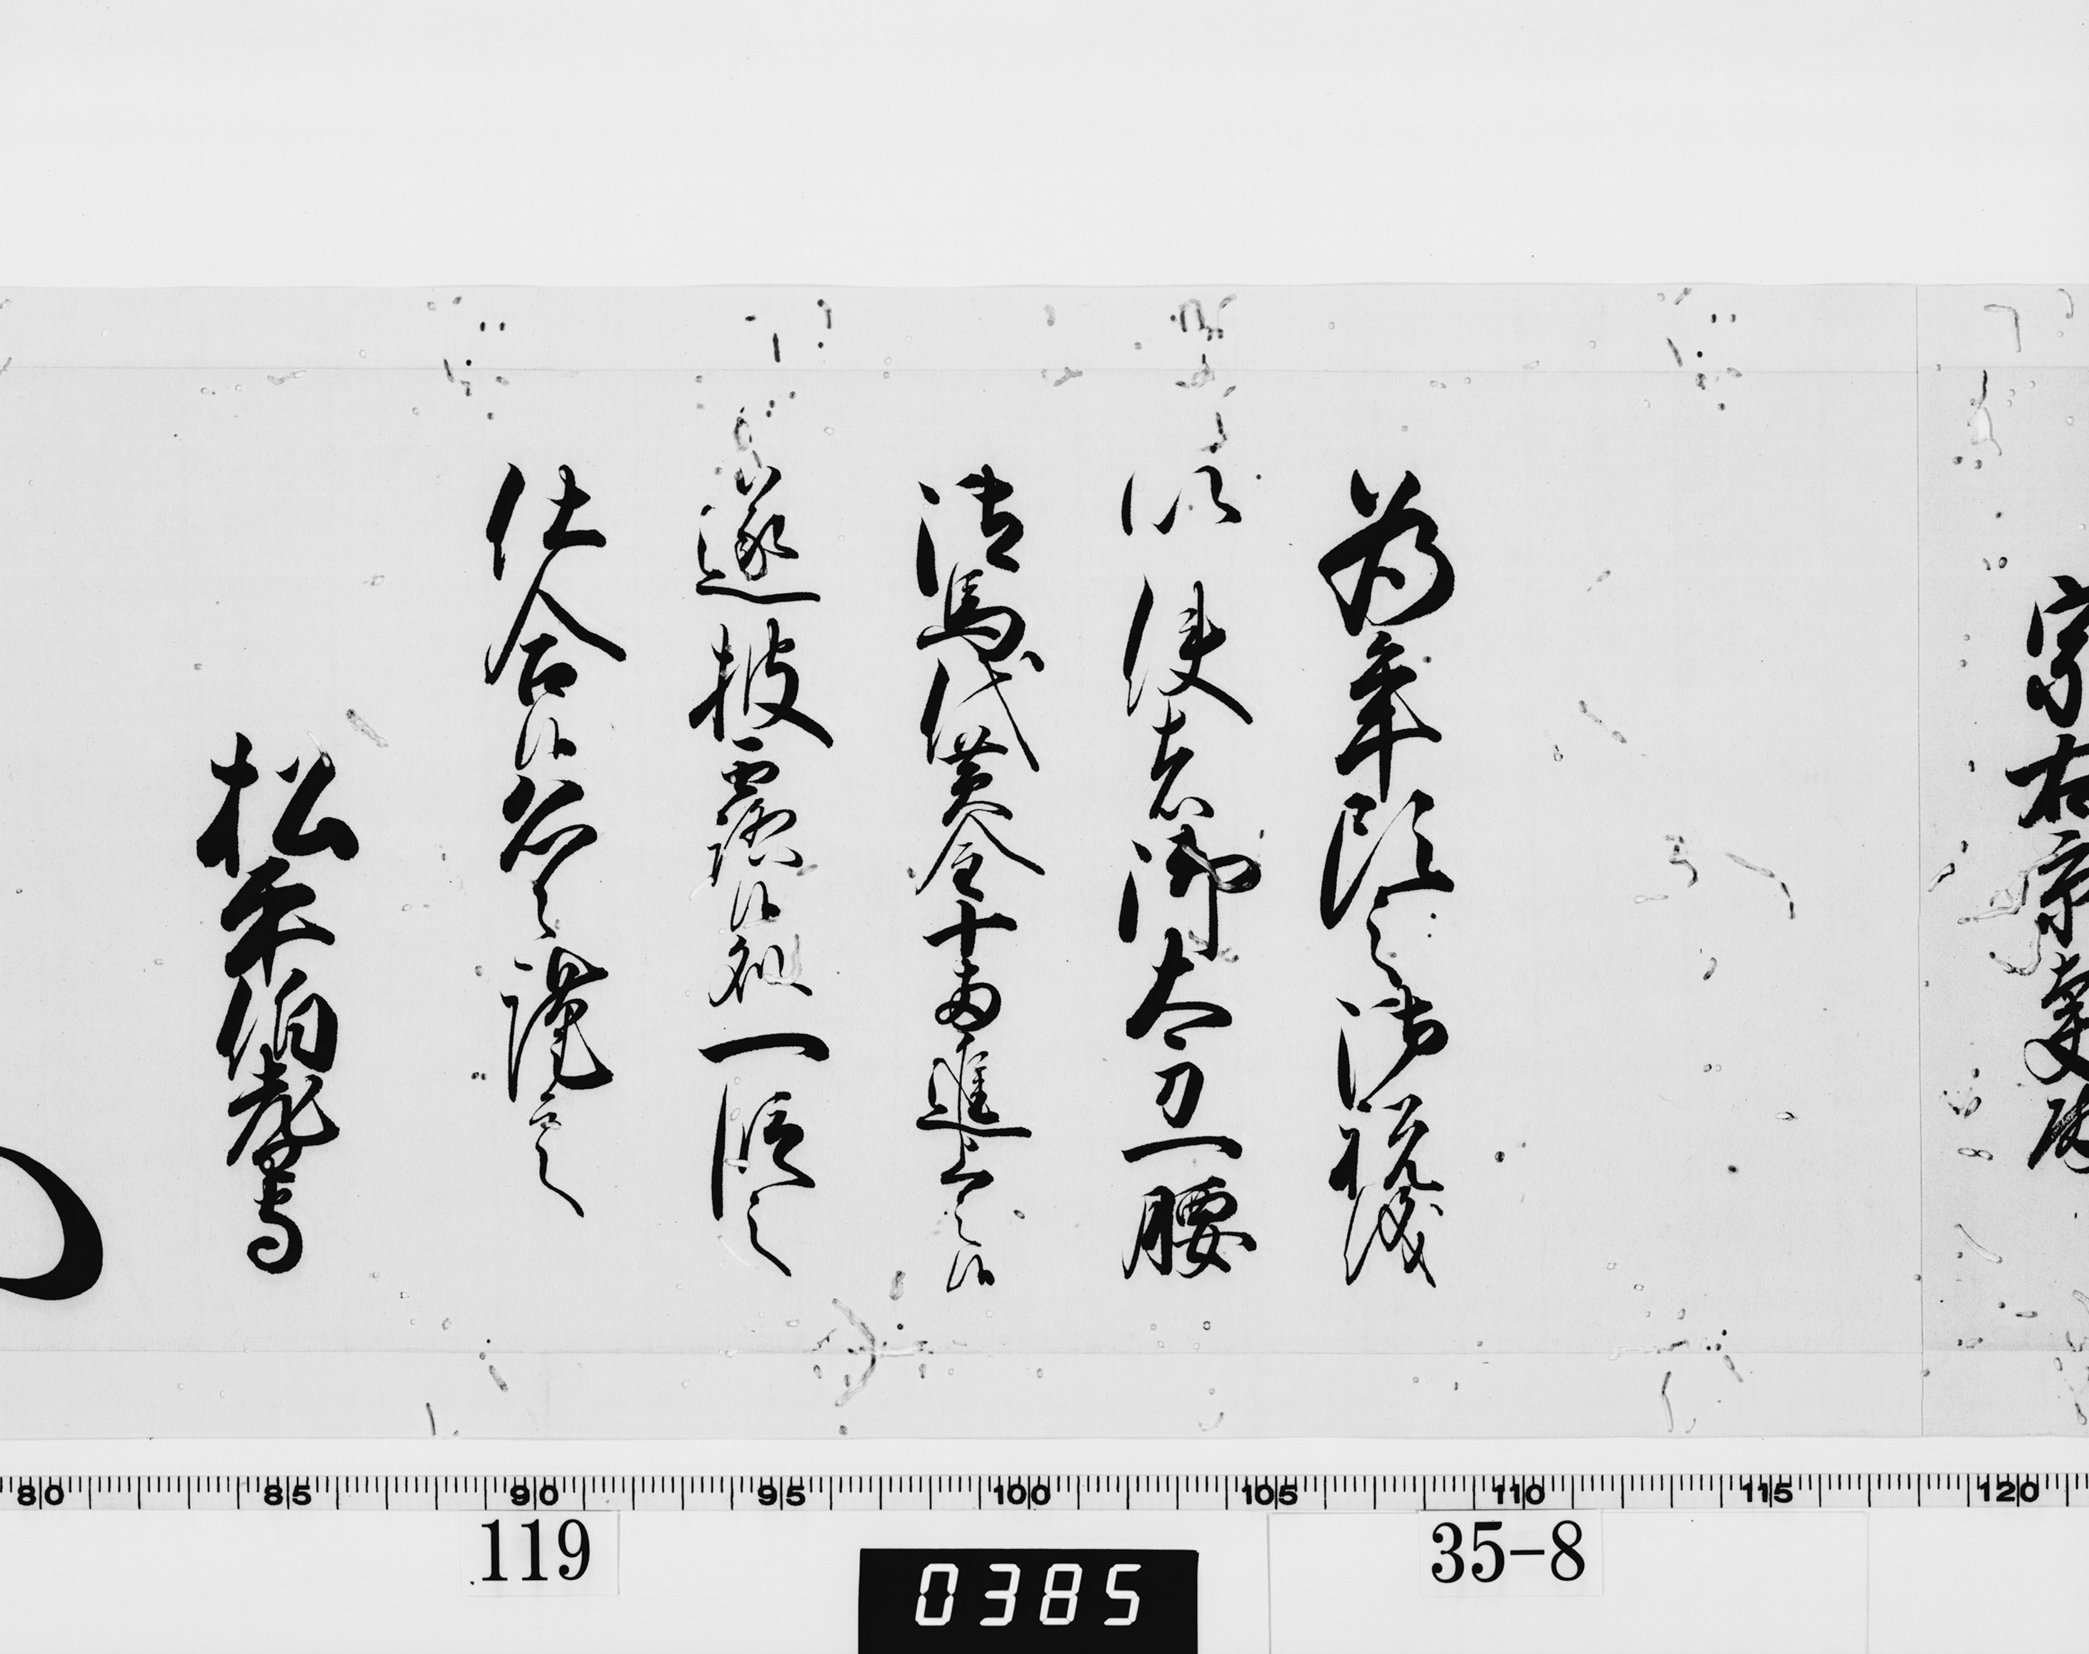 宗右京
為年頭之御祝儀
以使者御太刀一腰
御馬代黄金十両進上之候
遂披露候処一段之
仕合候恐々謹言
松平伯耆守
80 85 90 95 100 105 110 115 120
119
0385
35-8